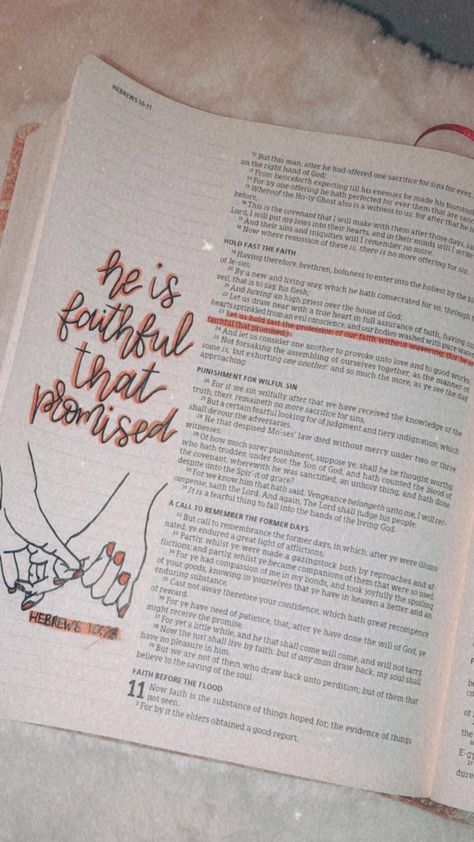 HEBREWS 10-11
he is
faithful
that
promised
HEBREWS 10:23
12 But this man, after he had offered one sacrifice for sins for ever,
on the right hand of God;
13 From henceforth expecting till his enemies be made his footstool
14 For by one offering he hath perfected for ever them that are
15 Whereof the Ho-ly Ghost also is a witness to us: for after that he
before,
16 This is the covenant that I will make with them after those days,
Lord, I will put my laws into their hearts, and in their minds will I write
17 And their sins and iniquities will I remember no more.
18 Now where remission of these is, there is no more offering for sin.
HOLD FAST THE FAITH
19 Having therefore, brethren, boldness to enter into the holiest by the
of Je-sus,
20 By a new and living way, which he hath consecrated for us, through
veil, that is to say, his flesh;
21 And having an high priest over the house of God;
22 Let us draw near with a true heart in full assurance of faith, having
hearts sprinkled from an evil conscience, and our bodies washed with pure
23 Let us hold fast the profession of our faith without wavering; (for he is
faithful that promised;)
24 And let us consider one another to provoke unto love and to good works:
25 Not forsaking the assembling of ourselves together, as the manner of
some is; but exhorting one another: and so much the more, as ye see the day
approaching.
PUNISHMENT FOR WILFUL SIN
26 For if we sin wilfully after that we have received the knowledge of the
truth, there remaineth no more sacrifice for sins,
27 But a certain fearful looking for of judgment and fiery indignation, which
shall devour the adversaries.
28 He that despised Mo-ses' law died without mercy under two or three
witnesses:
29 Of how much sorer punishment, suppose ye, shall he be thought worthy,
who hath trodden under foot the Son of God, and hath counted the blood of
the covenant, wherewith he was sanctified, an unholy thing, and hath done
despite unto the Spir-it of grace?
30 For we know him that hath said, Vengeance belongeth unto me, I will rec-
ompense, saith the Lord. And again, The Lord shall judge his people.
31 It is a fearful thing to fall into the hands of the living God.
A CALL TO REMEMBER THE FORMER DAYS
32 But call to remembrance the former days, in which, after ye were illumi-
nated, ye endured a great fight of afflictions;
33 Partly, whilst ye were made a gazingstock both by reproaches and af-
flictions; and partly, whilst ye became companions of them that were so used.
34 For ye had compassion of me in my bonds, and took joyfully the spoiling
of your goods, knowing in yourselves that ye have in heaven a better and an
enduring substance.
35 Cast not away therefore your confidence, which hath great recompence
of reward.
36 For ye have need of patience, that, after ye have done the will of God, ye
might receive the promise.
37 For yet a little while, and he that shall come will come, and will not tarry.
38 Now the just shall live by faith: but if any man draw back, my soul shall
have no pleasure in him.
39 But we are not of them who draw back unto perdition; but of them that
believe to the saving of the soul.
FAITH BEFORE THE FLOOD
11 Now faith is the substance of things hoped for, the evidence of things
not seen.
2 For by it the elders obtained a good report.